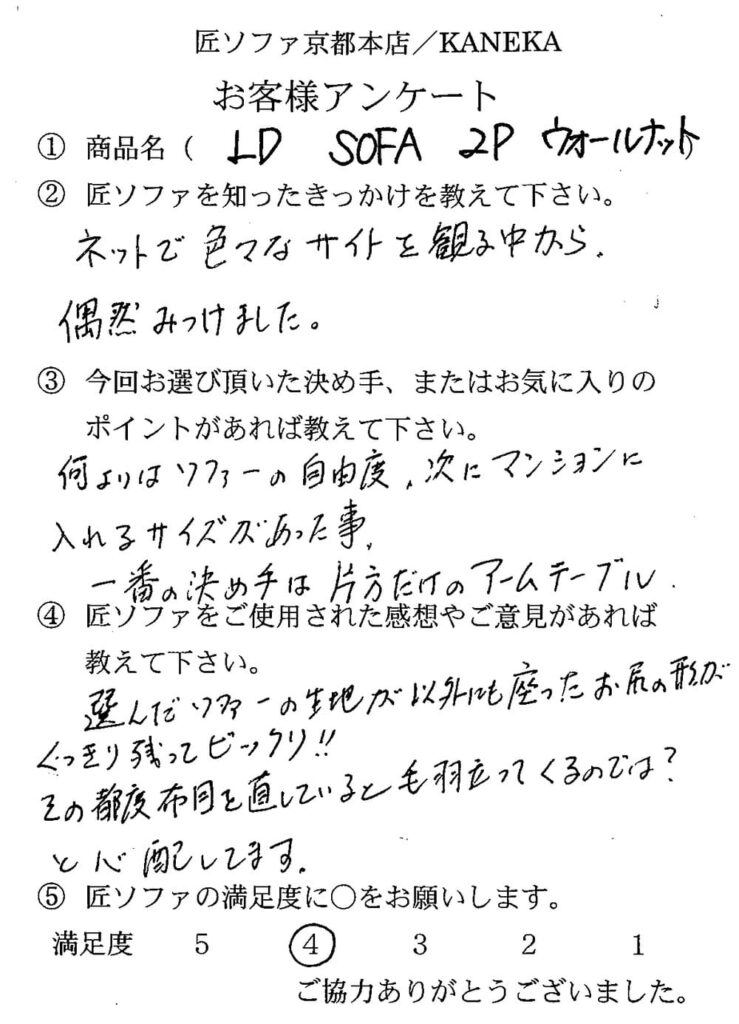 匠ソファ京都本店／KANEKA
お客様アンケート
① 商品名（ LD SOFA 2P ウォールナット）
② 匠ソファを知ったきっかけを教えて下さい。
ネットで色々なサイトを観る中から、
偶然みつけました。
③ 今回お選び頂いた決め手、またはお気に入りの
ポイントがあれば教えて下さい。
何よりはソファーの自由度、次にマンションに
入れるサイズがあった事、
一番の決め手は片方だけのアームテーブル．
④ 匠ソファをご使用された感想やご意見があれば
教えて下さい。
選んだソファーの生地が以外にも座ったお尻の形が
くっきり残ってビックリ!!
その都度布目を直していると毛羽立ってくるのでは？
と心配してます．
⑤ 匠ソファの満足度に○をお願いします。
満足度 5 ④ 3 2 1
ご協力ありがとうございました。